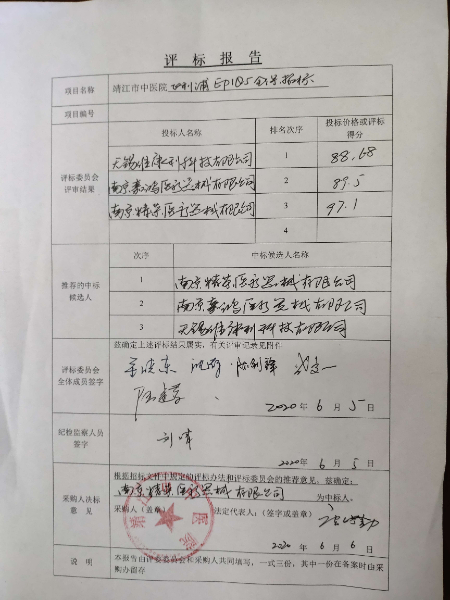 评标报告
项目名称 靖江市中医院 飞利浦 EPIQ5 招标
项目编号
投标人名称 排名次序 投标价格或评标得分
评标委员会评审结果
无锡 康利科技有限公司 1 88.68
南京 医疗器械有限公司 2 89.5
南京精英医疗器械有限公司 3 97.1
4
次序 中标候选人名称
推荐的中标候选人
1 南京精英医疗器械有限公司
2 南京 医疗器械有限公司
3 无锡 康利科技有限公司
兹确定上述评标结果属实，有关评审记录见附件
评标委员会全体成员签字
2020年6月5日
纪检监察人员签字
2020年6月5日
根据招标文件中规定的评标办法和评标委员会的推荐意见，兹确定：
南京精英医疗器械有限公司 为中标人。
采购人决标意见
采购人（盖章） 法定代表人：（签字或盖章）
2020年6月6日
说明 本报告由评委委员会和采购人共同填写，一式三份，其中一份在备案时由采购办留存